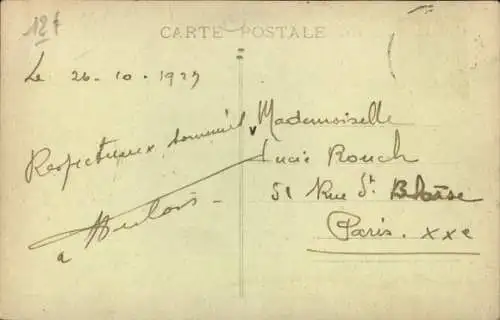 12f
CARTE POSTALE
Le 26-10-1927
Respectueux souvenir
Mademoiselle
Lucie Rouch
51 Rue St. Blaise
Paris. XXe